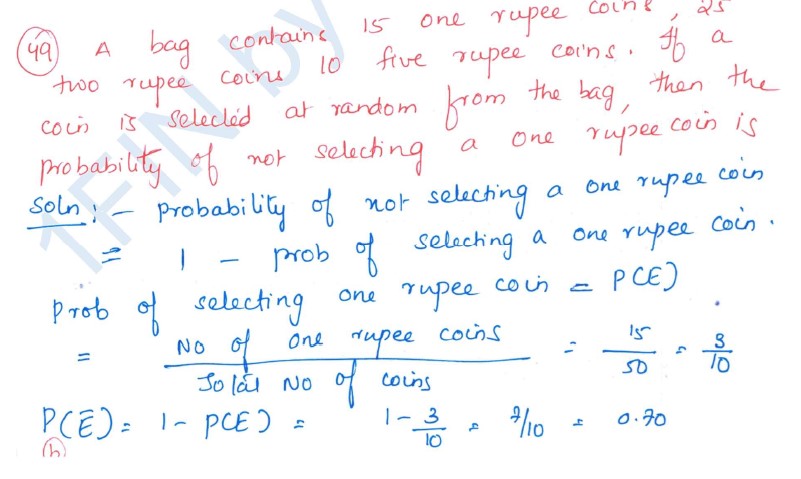 49 A bag contains 15 one rupee coins, 25
two rupee coins 10 five rupee coins. If a
coin is selected at random from the bag, then the
probability of not selecting a one rupee coin is
Soln:- Probability of not selecting a one rupee coin
= 1 - prob of selecting a one rupee coin.
Prob of selecting one rupee coin = P(E)
= No of one rupee coins / Total No of coins = 15/50 = 3/10
P(E) = 1 - P(E) = 1 - 3/10 = 7/10 = 0.70
(b)
1FIN by